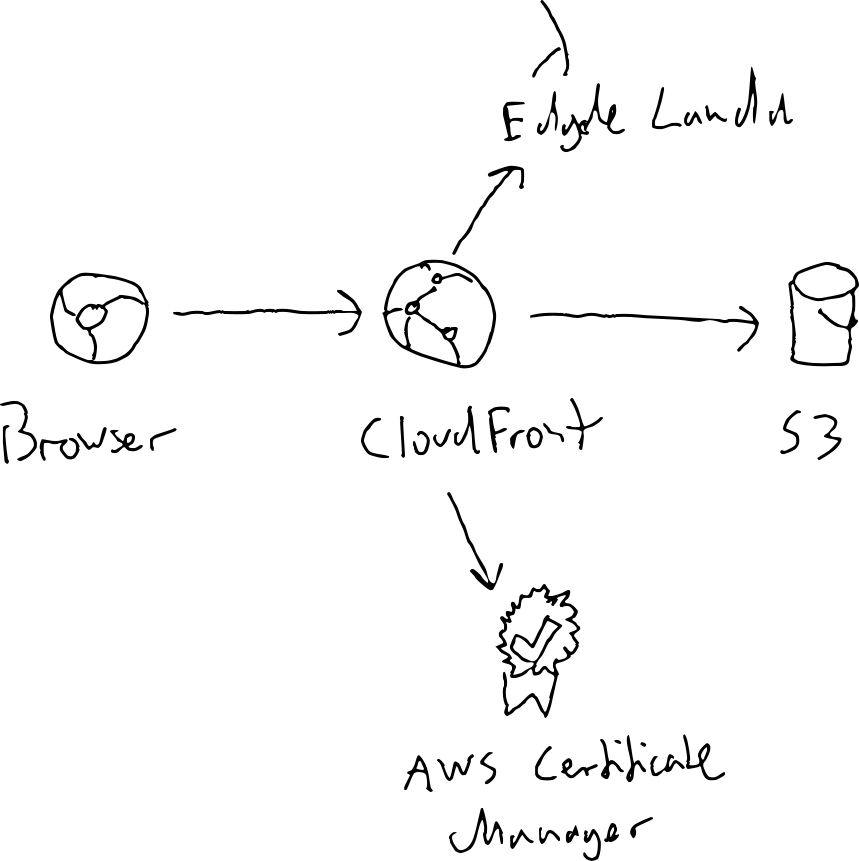 Edgde Lamdd
Browser
CloudFront
S3
AWS Certificate
Manager